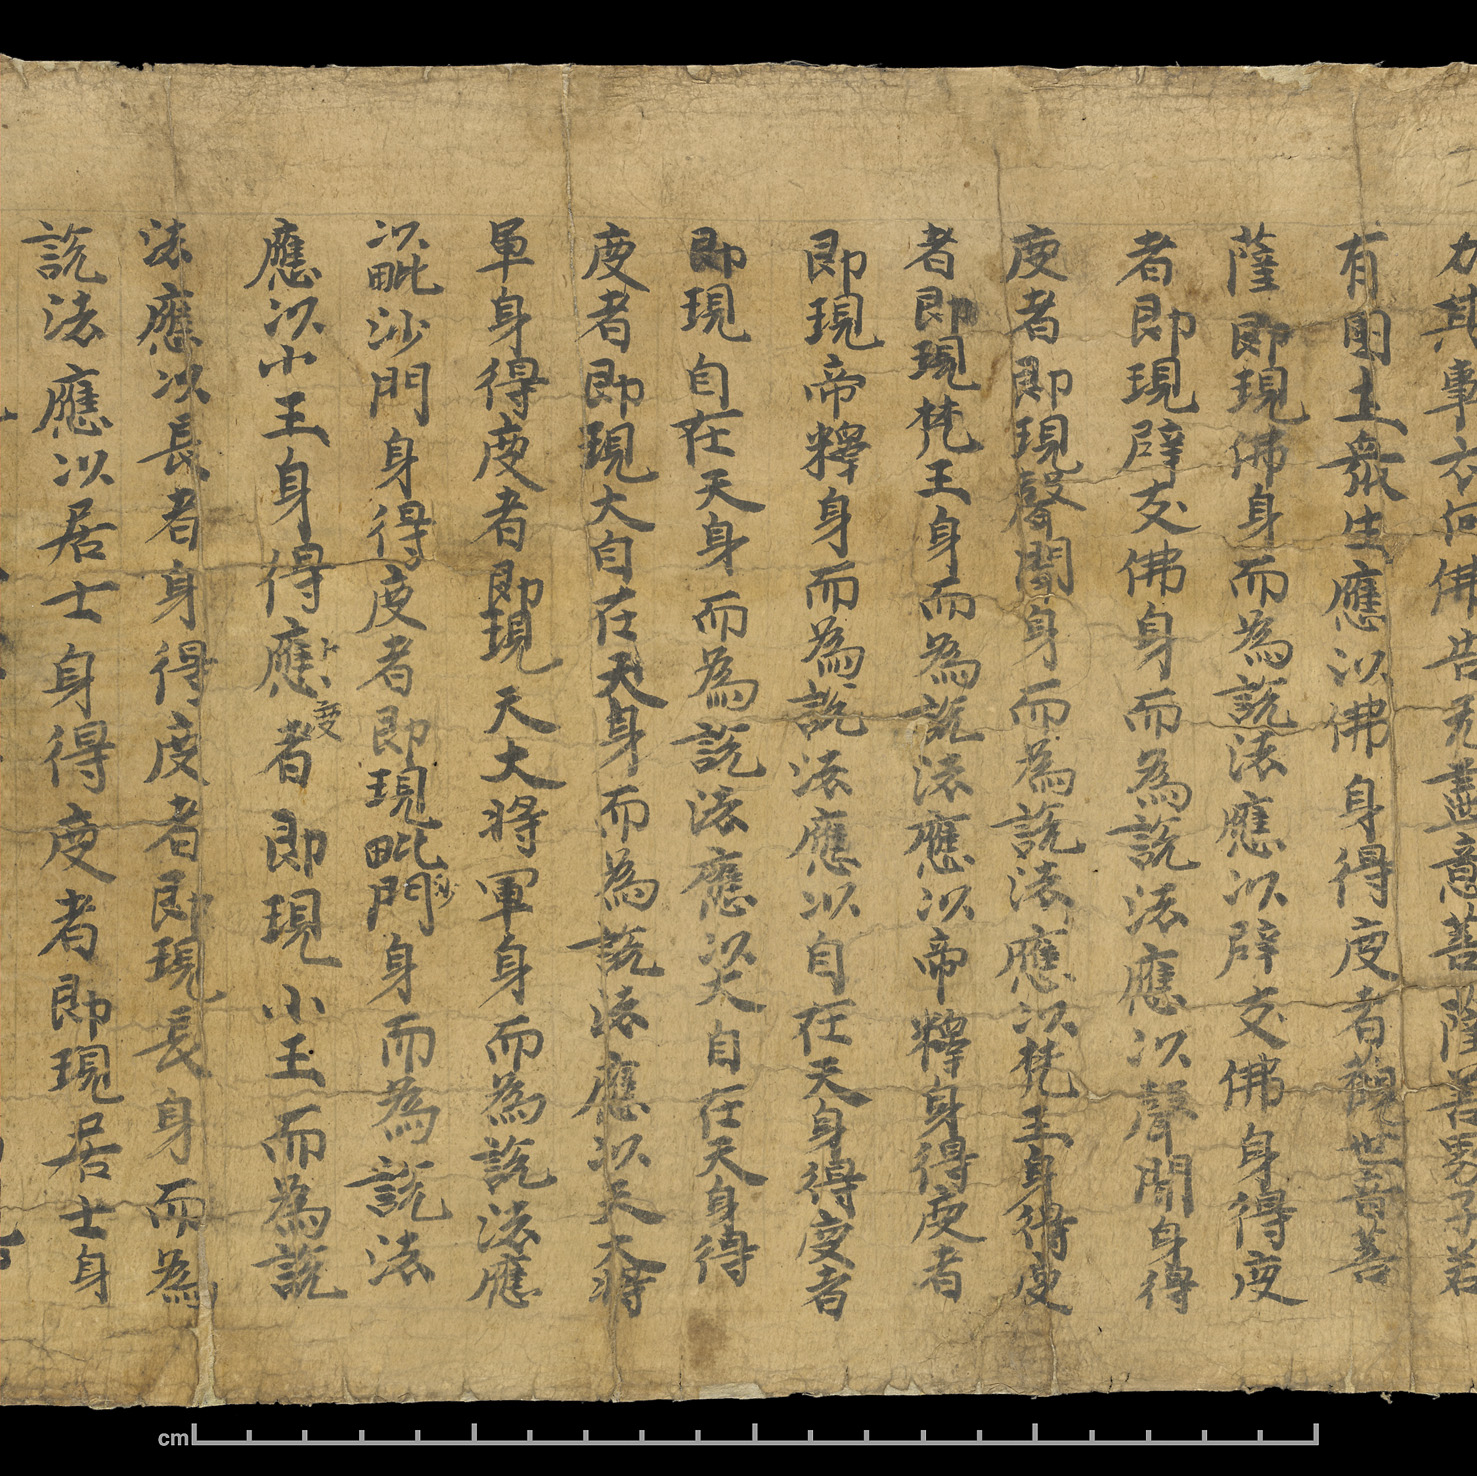 力其事云何佛告无盡意菩薩善男子若
有国土衆生應以佛身得度者觀世音菩
薩即現佛身而為説法應以辟支佛身得度
者即現辟支佛身而為説法應以聲聞身得
度者即現聲聞身而為説法應以梵王身得度
者即現梵王身而為説法應以帝釋身得度者
即現帝釋身而為説法應以自在天身得度者
即現自在天身而為説法應以天自在天身得
度者即現大自在天身而為説法應以天大将
軍身得度者即現天大将軍身而為説法應
以毗沙門身得度者即現毗沙門身而為説法
應以小王身得應卜度者即現小王而為説
法應以長者身得度者即現長身而為
説法應以居士身得度者即現居士身